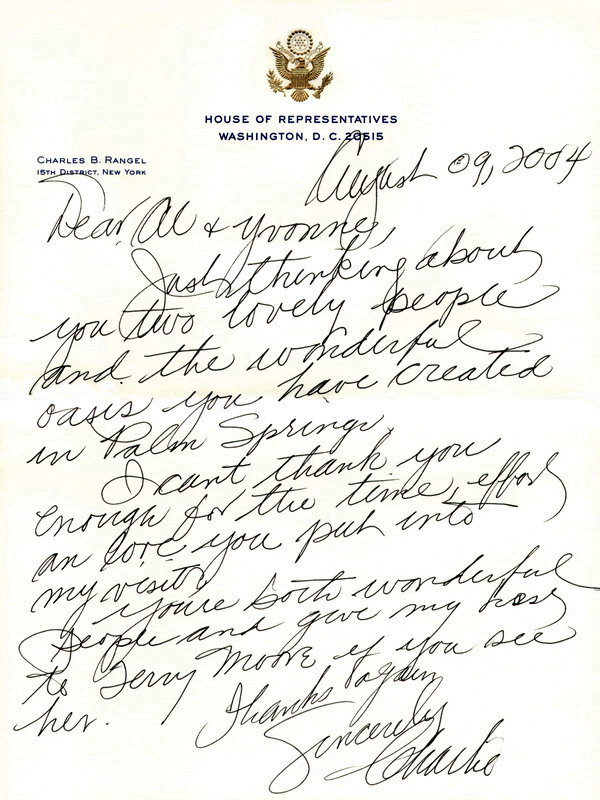 HOUSE OF REPRESENTATIVES
WASHINGTON, D. C. 20515
CHARLES B. RANGEL
15TH DISTRICT, NEW YORK
August 09, 2004
Dear Al & Yvonne,
Just thinking about
you two lovely people
and the wonderful
oasis you have created
in Palm Springs.
I cant thank you
enough for the time, effort
an love you put into
my visit.
youre both wonderful
people and give my best
to Terry Moore if you see
her.
Thanks again
Sincerely
Charlie